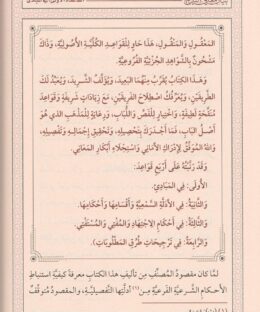 المَعْقُولِ وَالمَنْقُولِ، هَذَا حَاوٍ لِلْقَوَاعِدِ الكُلِّيَّةِ الأُصُولِيَّةِ، وَذَاكَ
مَشْحُونٌ بِالشَّوَاهِدِ الجُزْئِيَّةِ الفُرُوعِيَّةِ.
وَهَذَا الكِتَابُ يُقَرِّبُ مِنْهُمَا البَعِيدَ، وَيُؤَلِّفُ الشَّرِيدَ، وَيُعَبِّدُ لَكَ
الطَّرِيقَيْنِ، وَيُعَرِّفُكَ اصْطِلَاحَ الفَرِيقَيْنِ، مَعَ زِيَادَاتٍ شَرِيفَةٍ وَقَوَاعِدَ
مُنَقَّحَةٍ لَطِيفَةٍ، وَاخْتِيَارٍ لِلْفَصِّ وَاللُّبَابِ، وَرِعَايَةٍ لِلْمَذْهَبِ الَّذِي هُوَ
أَصْلُ البَابِ، فَمَا أَجْدَرَكَ بِتَحْصِيلِهِ، وَتَحْقِيقِ إِجْمَالِهِ وَتَفْصِيلِهِ،
وَاللهُ المُوَفِّقُ لِإِدْرَاكِ الأَمَانِي، وَاسْتِجْلَاءِ أَبْكَارِ المَعَانِي.
وَقَدْ رَتَّبْتُهُ عَلَى أَرْبَعِ قَوَاعِدَ:
الأُولَى: فِي المَبَادِئِ.
وَالثَّانِيَةُ: فِي الأَدِلَّةِ السَّمْعِيَّةِ وَأَقْسَامِهَا وَأَحْكَامِهَا.
وَالثَّالِثَةُ: فِي أَحْكَامِ الاجْتِهَادِ وَالمُفْتِي وَالمُسْتَفْتِي.
وَالرَّابِعَةُ: فِي تَرْجِيحَاتِ طُرُقِ المَطْلُوبَاتِ).
لمَّا كان مقصودُ المصنِّف مِن تأليف هذا الكتاب معرفةَ كيفيَّةِ استنباطِ
الأحكامِ الشَّرعيَّةِ الفَرعيَّةِ مِن(١) أدلَّتِها التَّفصيليَّةِ، والمقصودُ مُتوقِّفٌ